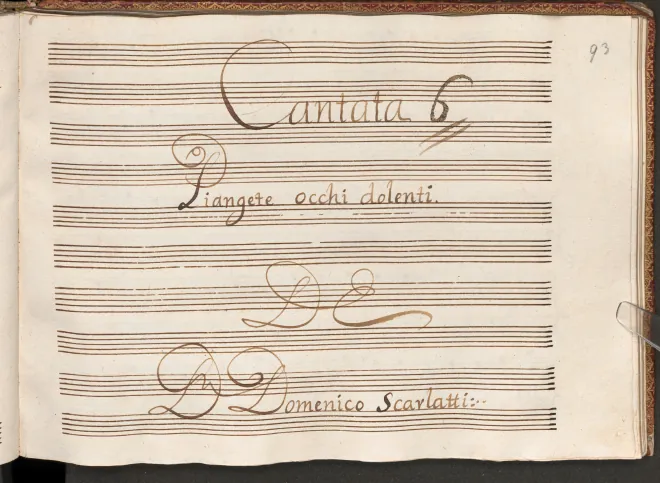 93
Cantata 6
Piangete occhi dolenti.
DE
Dn Domenico Scarlatti:-